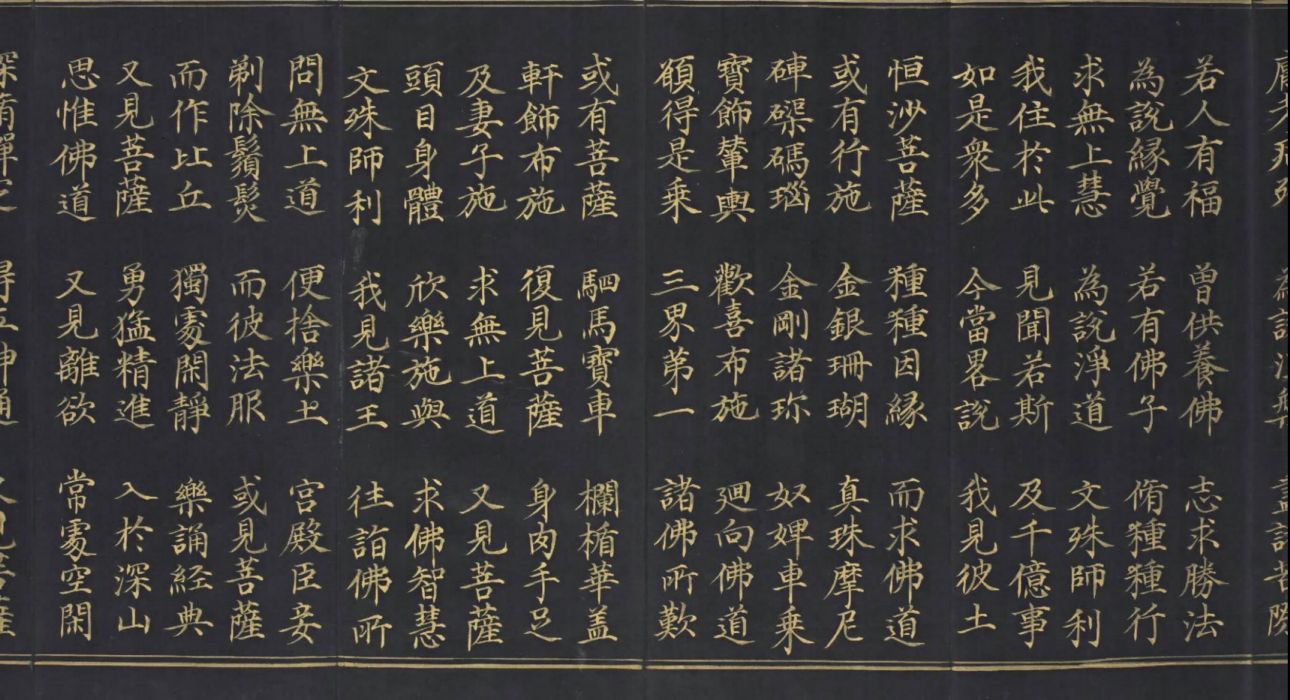 若人有福 曽供養佛 志求勝法
為說縁覺 若有佛子 脩種種行
求無上慧 為說淨道 文殊師利
我住於此 見聞若斯 及千億事
如是衆多 今當畧說 我見彼土
恒沙菩薩 種種因縁 而求佛道
或有行施 金銀珊瑚 真珠摩尼
硨磲碼瑙 金剛諸珎 奴婢車乗
寶飾輦輿 歡喜布施 廻向佛道
願得是乗 三界第一 諸佛所歎
或有菩薩 駟馬寶車 欄楯華盖
軒飾布施 復見菩薩 身肉手足
及妻子施 求無上道 又見菩薩
頭目身體 欣樂施與 求佛智慧
文殊師利 我見諸王 往詣佛所
問無上道 便捨樂土 宮殿臣妾
剃除鬚髮 而彼法服 或見菩薩
而作比丘 獨處閑靜 樂誦経典
又見菩薩 勇猛精進 入於深山
思惟佛道 又見離欲 常處空閑